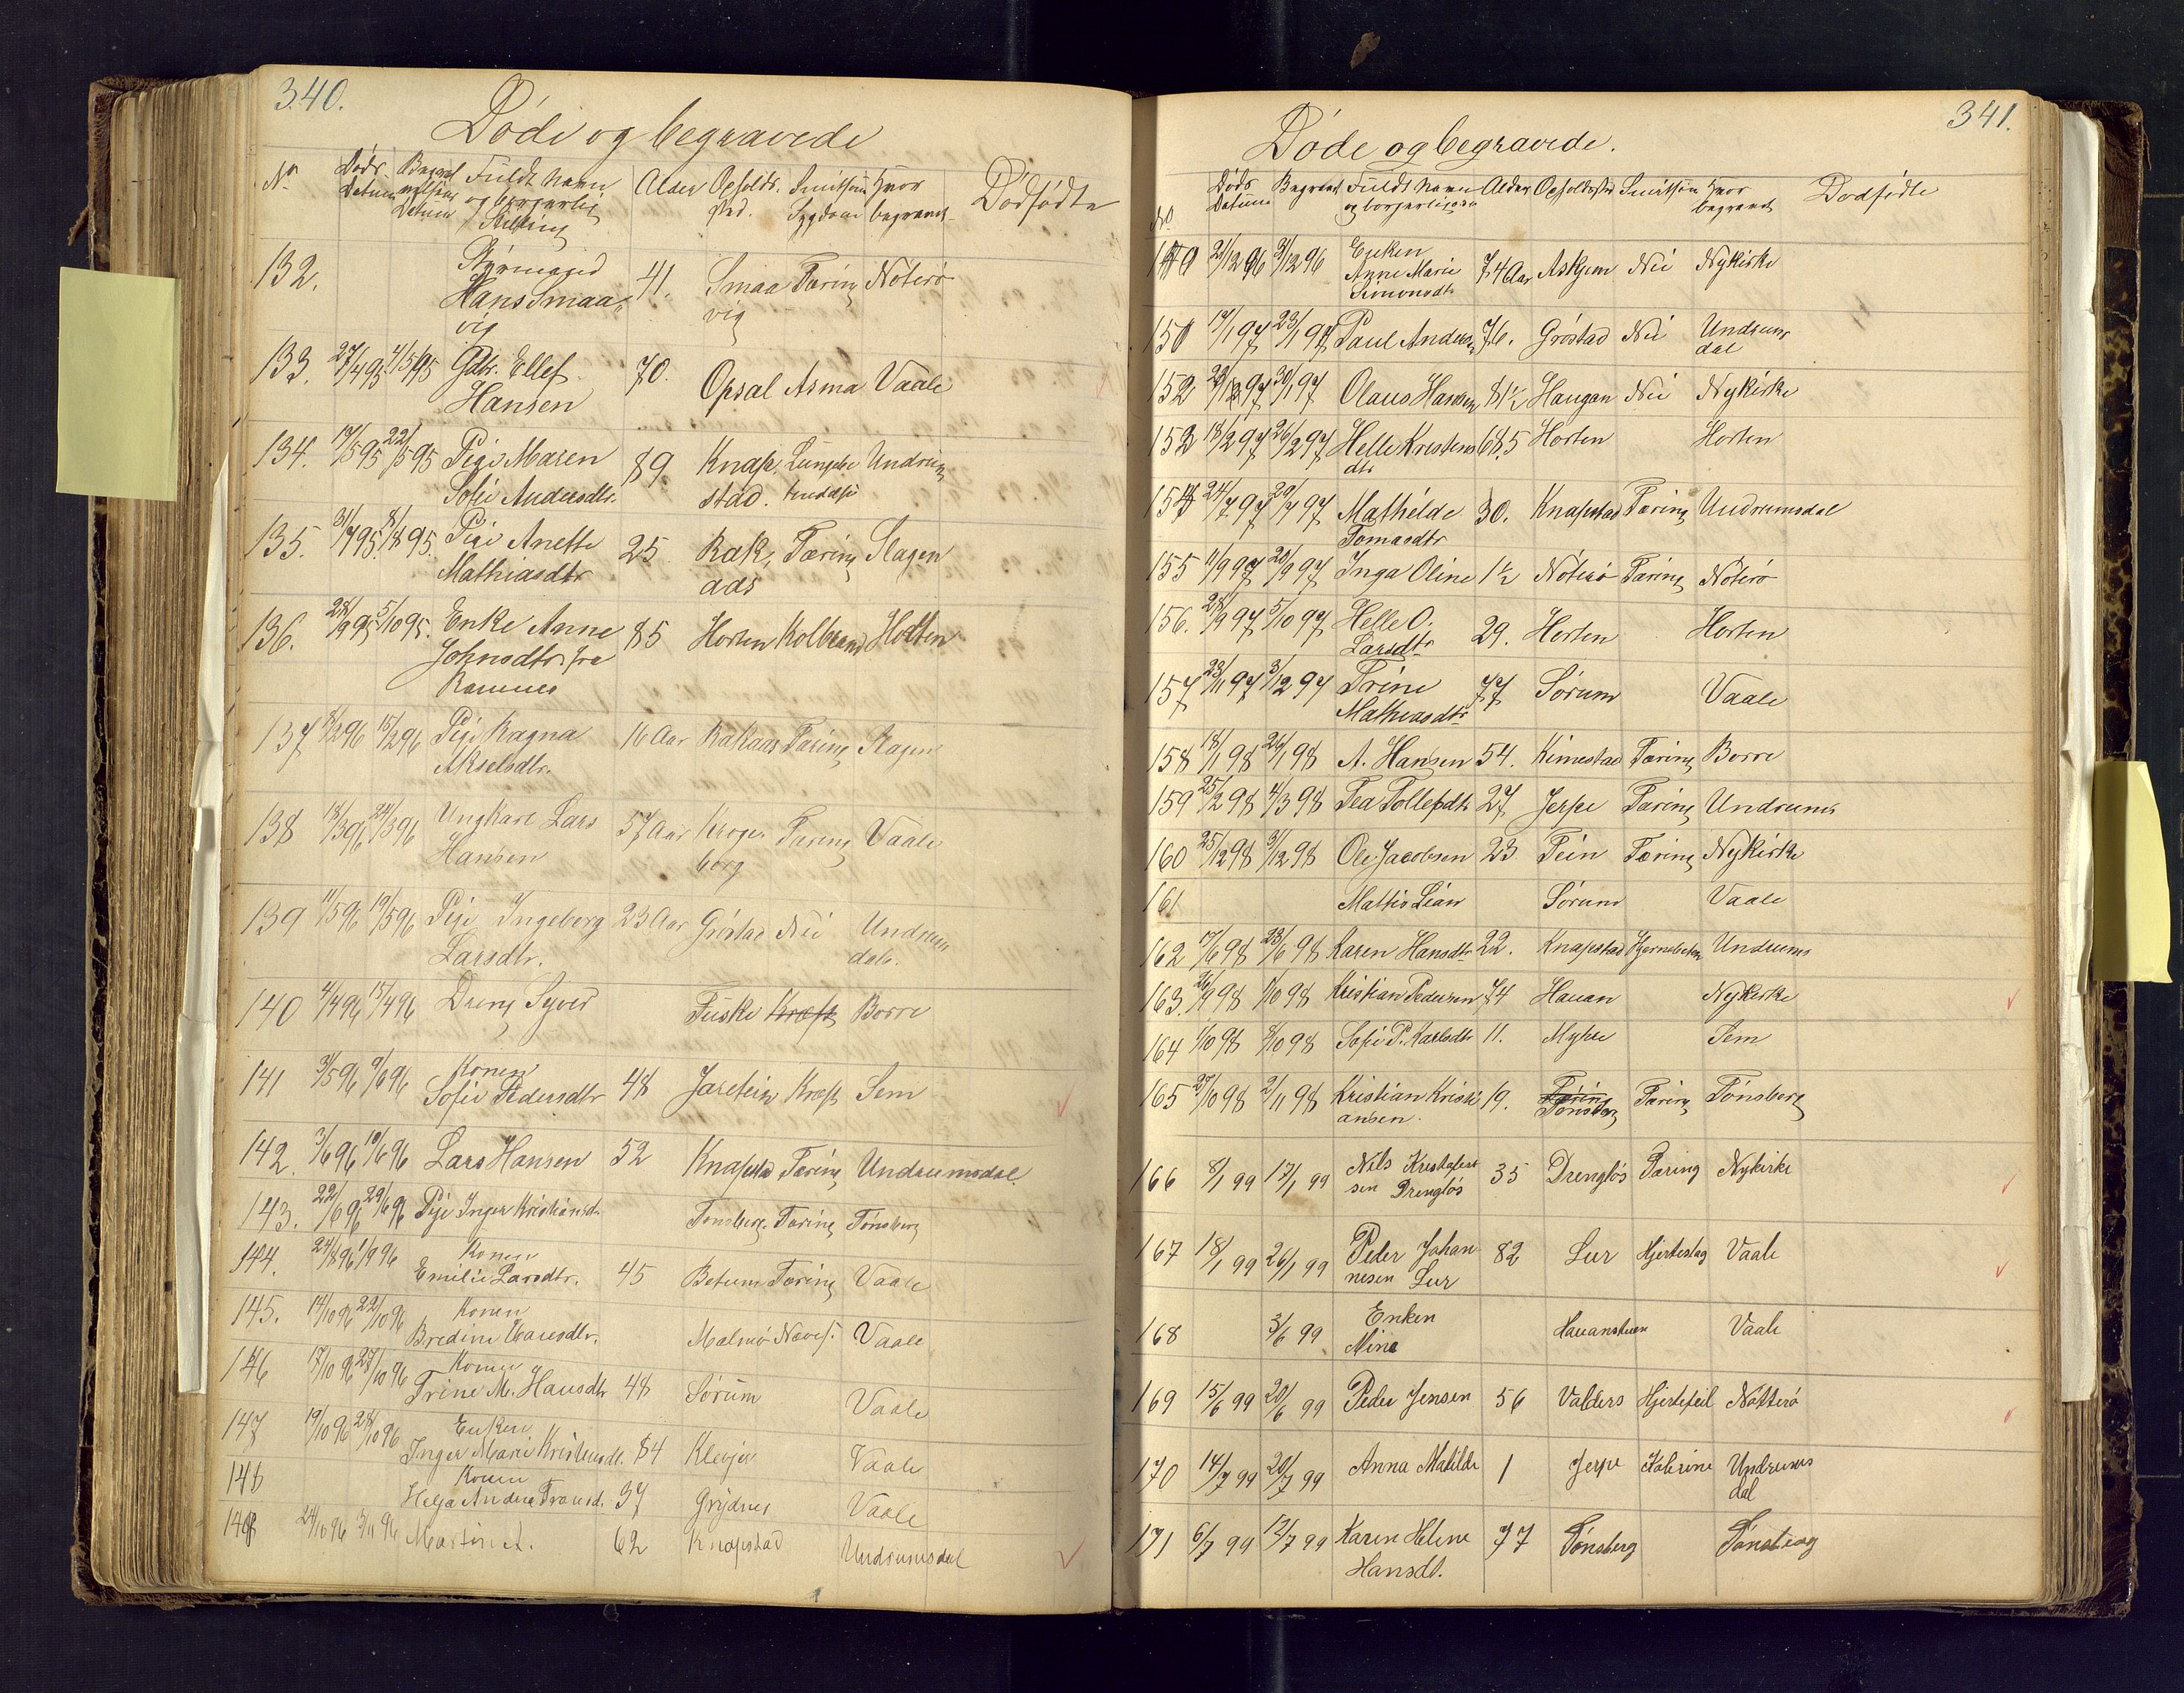 340.
Døde og begravede
No Døds- Datum Begravelsens Datum Fuldt Navn og borgerlig Stilling Alder Opholds- sted. Smitsom Sygdom Hvor begravet Dødfødte
132. Styrmand Hans Smaa- vig 41. Smaa vig Tæring Noterö
133. 27/4 95 4/5 95 Gdbr. Ellef Hansen 70. Opsal Asma Vaale
134. 17/5 95 22/5 95 Pige Maren Sofie Andersdtr. 89. Knap- stad. Undrum
135. 31/7 95. 8/8 95. Pige Anette Mathiasdtr 25 Rak- aas Tæring Slagen
136. 28/9 95 5/10 95. Enke Anne Johnsdtr. fra Ramnes 85 Horten Kolbrand Horten
137 8/2 96 15/2 96 Pige Ragna Akselsdtr. 16 Aar Rakaas Tæring Slagen
138 18/3 96 24/3 96 Ungkarl Lars Hansen 57 Aar Kroge- borg Tæring Vaale
139 11/5 96 19/5 96 Pige Ingeborg Larsdtr. 23 Aar Gröstad Nei Undrum dal.
140 4/4 96 15/4 96 Dreng Syver Fuske Kræft Borre
141 3/5 96 9/6 96 Konen Sofie Pedersdtr 48 Jareteien Kræft Sem
142. 3/6 96 10/6 96 Lars Hansen 52 Knapsta Tæring Undrumsdal.
143. 22/6 96 29/6 96 Pige Inger Kristiansd. Tønsberg. Tæring Tønsberg
144. 24/8 96 1/9 96 Konen Emilie Larsdtr. 45 Betum Tæring Vaale
145. 14/10 96 22/10 96 Konen Bredine Hansdtr. Malmö Vaale
146 17/10 96 27/10 96 Konen Trine M. Hansdtr 48 Sörum Vaale
147 19/10 96 24/10 96 Enken Inger Marie Kristensdt. 84 Klevjer Vaale
148 Konen Helga Andrea Fransd. 37 Grydnes Vaale
148 24/10 96 3/11 96 Martin A. 62 Knapstad Undrumsdal
341.
Døde og begravede.
No Døds Datum Begravet Fuldt Navn og borgerlig Alder Opholdssted Smitsom Hvor begravet Dødfødte
149 21/12 96 31/12 96 Enken Anne Marie Simonsdtr 74 Aar Askjem Nei Nykirke
150 17/1 97 23/1 97 Paul Andersen 76. Gröstad Nei Undrums dal
152 30/1 97 Olaus Hansen 81½ Haugan Nei Nykirke
153 18/2 97 26/2 97 Helle Kristens dtr 68.5 Horten Horten
154 24/7 97 29/7 97 Mathilde Tomasdtr 30. Knapstad Tæring Undrumsdal
155 11/9 97 20/9 97 Inga Oline 1½ Nöterö Tæring Nöterö
156. 28/9 97 5/10 97 Helle O. Larsdtr 29. Horten Horten
157 23/11 97 3/12 97 Trine Mathiasdtr 77 Sörum Vaale
158 18/1 98 26/1 98 A. Hansen 54. Kimestad Tæring Borre
159 25/2 98 4/3 98 Tea Tollefsdtr 27. Jerpe Tæring Undrums
160 25/12 98 3/12 98 Ole Jacobsen 23 Tein Tæring Nykirke
161 Mathis Lian Sörum Vaale
162 17/6 98 23/6 98 Karen Hansdtr 22. Knapstad Undrums
163. 26/9 98 1/10 98 Kristian Pedersen 74 Hauan Nykirke
164 1/10 98 8/10 98 Sofie P. Karlsdtr 11. Myhre Sem
165 27/10 98 2/11 98 Kristian Kristi ansen. 19. Tæring Tønsberg Tæring Tønsberg
166 8/1 99 17/1 99 Nils Kristofer sen Drengløs 35 Drengløs Tæring Nykirke
167 18/1 99 26/1 99 Peder Johan- nesen Lur 82 Lur Hjerteslag Vaale
168 3/6 99 Enken Mina Hauanstuen Vaale
169 15/6 99 20/6 99 Peder Jensen 56 Valders Hjertefeil Nötterö
170 14/7 99 20/7 99 Anna Matilde 1 Jerpe Kolerine Undrums dal
171 6/7 99 12/7 99 Karen Helene Hansdt. 77 Tønsberg Tønsberg